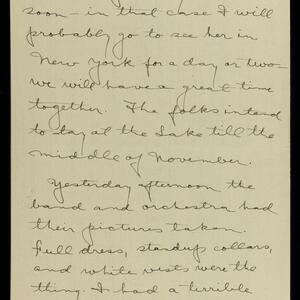 soon — in that case I will
probably go to see her in
New York for a day or two —
we will have a great time
together. The folks intend
to stay at the Lake till the
middle of November.
Yesterday afternoon the
band and orchestra had
their pictures taken.
Full dress, standup collars,
and white vests were the
thing. I had a terrible